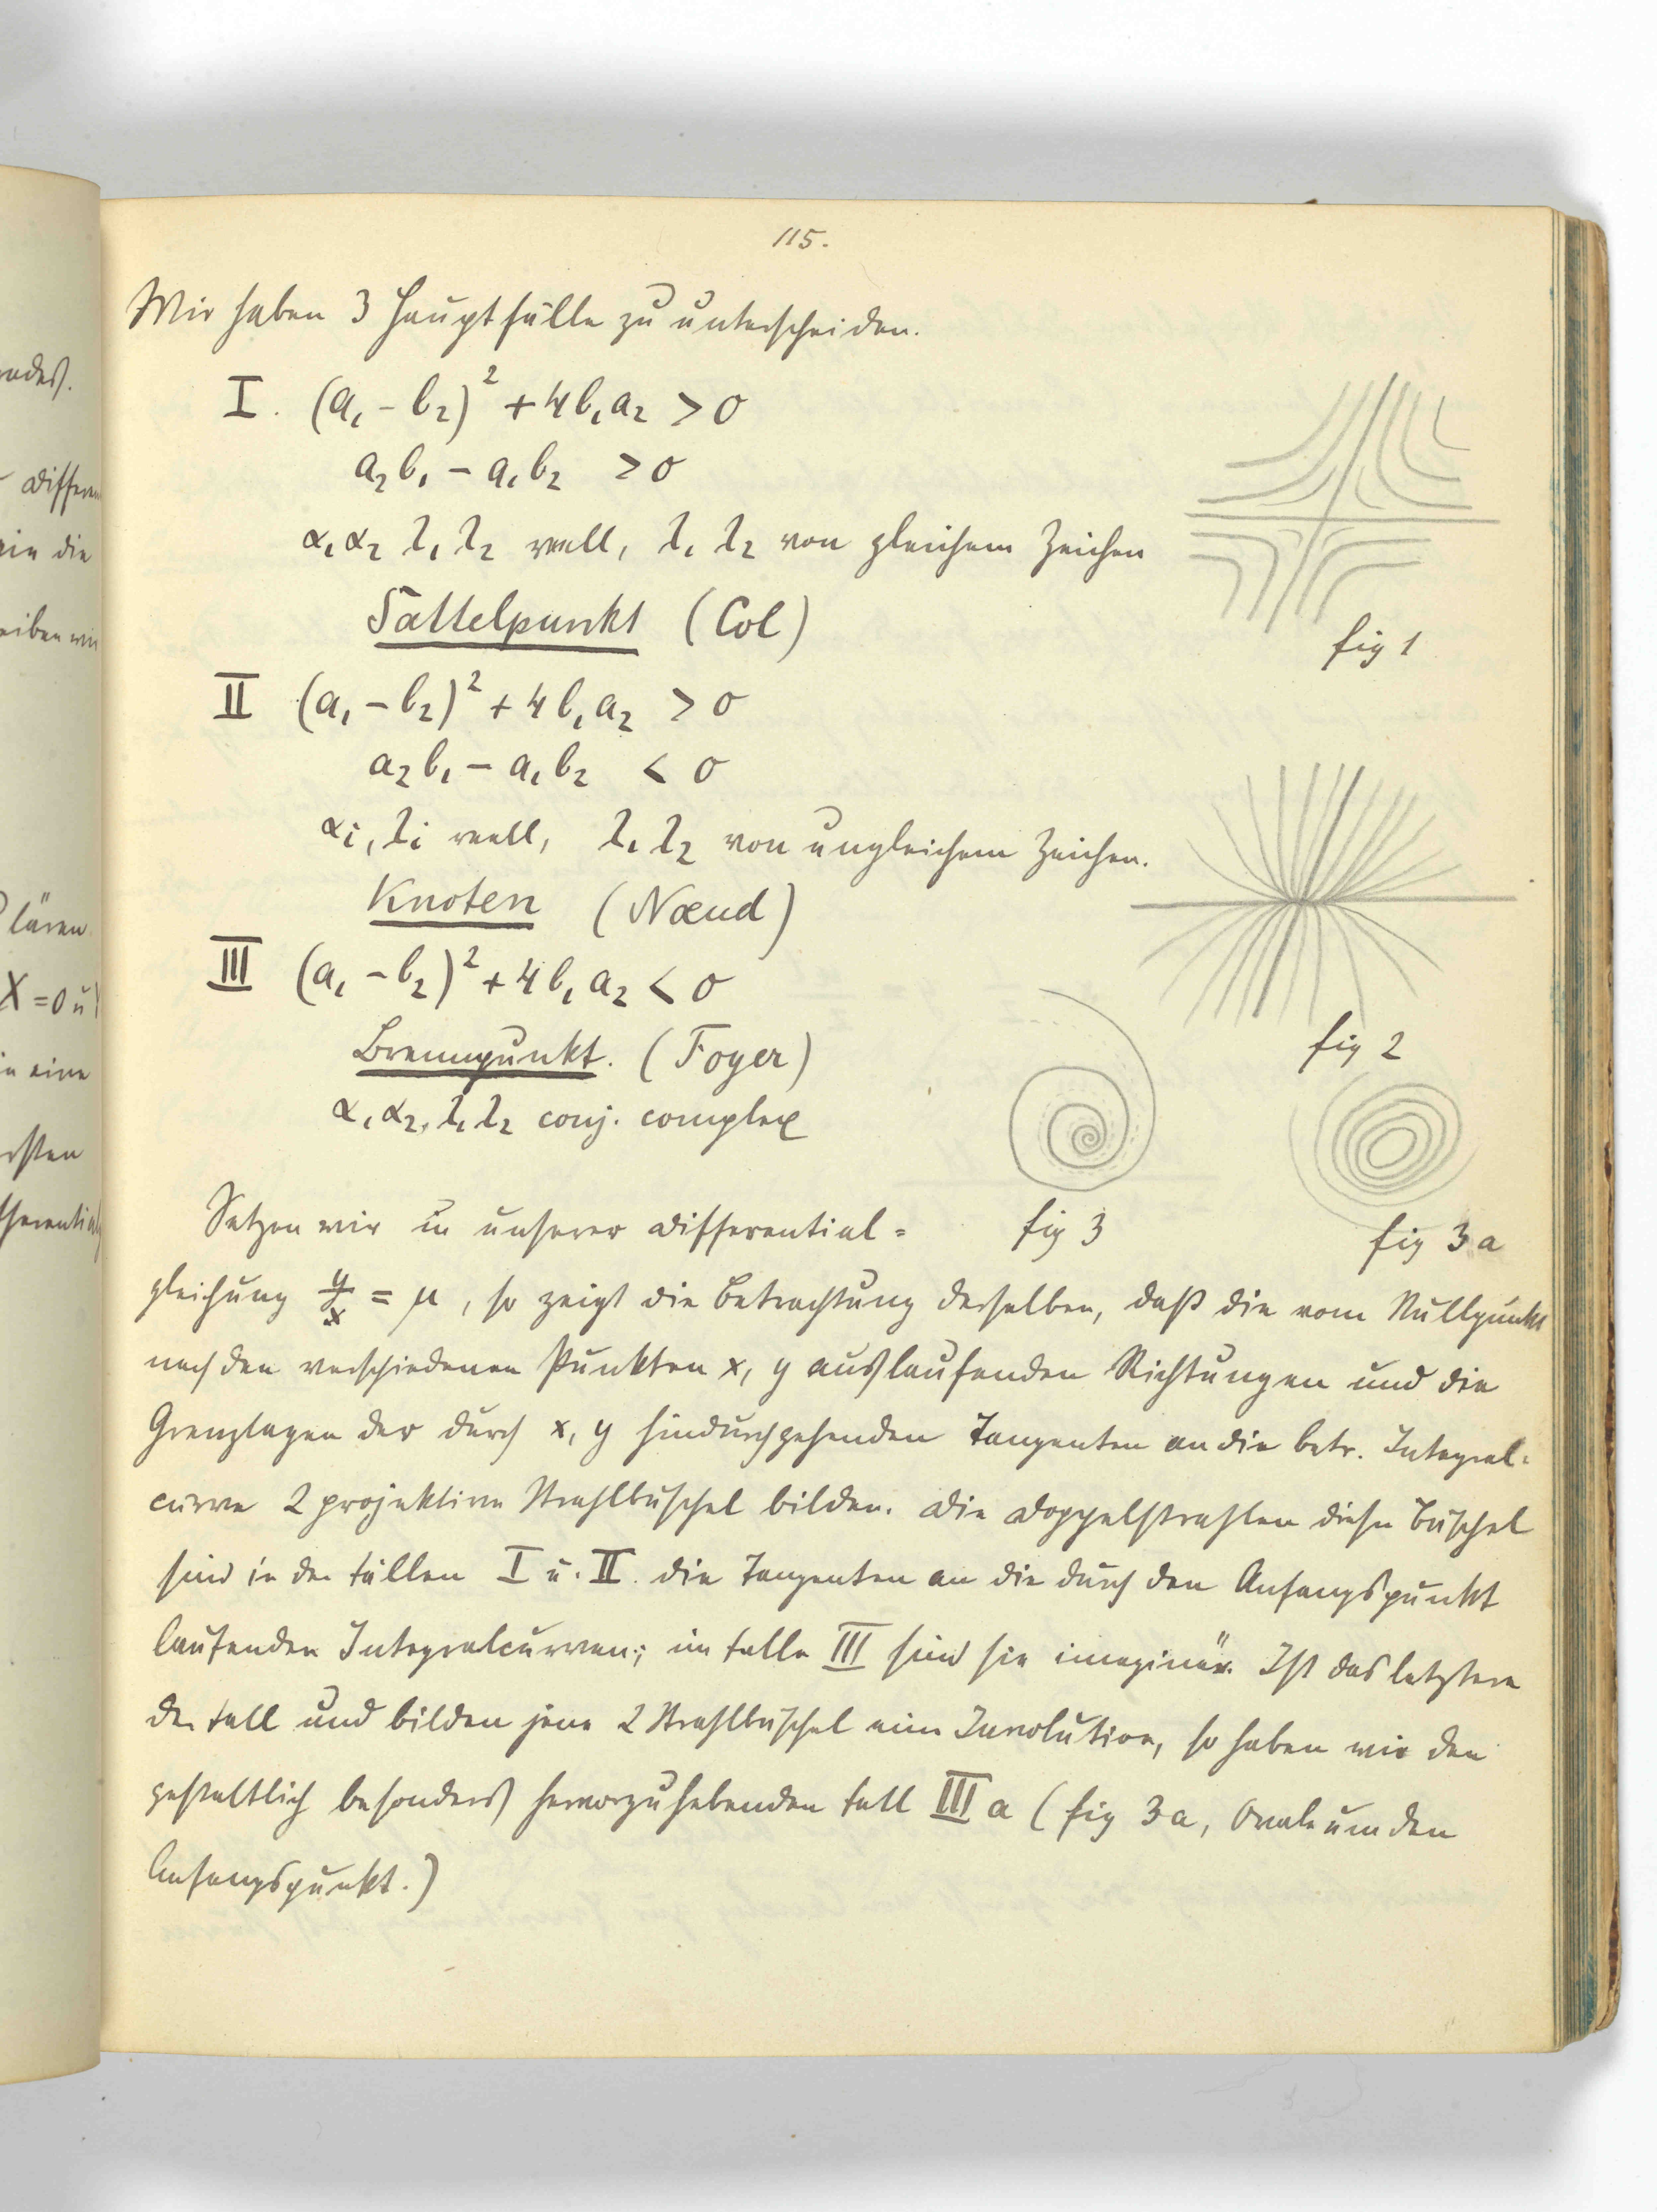 115.
Wir haben 3 Hauptfälle zu unterscheiden.
I. (a₁ - b₂)² + 4b₁a₂ > 0
a₂b₁ - a₁b₂ > 0
α₁ α₂ λ₁ λ₂ reell, λ₁ λ₂ von gleichem Zeichen
Sattelpunkt (Col)
fig 1
II (a₁ - b₂)² + 4b₁a₂ > 0
a₂b₁ - a₁b₂ < 0
αi, λi reell, λ₁ λ₂ von ungleichem Zeichen.
Knoten (Nœud)
fig 2
III (a₁ - b₂)² + 4b₁a₂ < 0
Brennpunkt. (Foyer)
α₁ α₂, λ₁ λ₂ conj. complex
fig 3
fig 3a
Setzen wir in unserer Differential-
gleichung y/x = μ, so zeigt die Betrachtung derselben, daß die vom Nullpunkt
nach den verschiedenen Punkten x, y auslaufenden Richtungen und die
Grenzlagen der durch x, y hindurchgehenden Tangenten an die betr. Integral-
curve 2 projektive Strahlbüschel bilden. Die Doppelstrahlen dieser Büschel
sind in den Fällen I u. II. die Tangenten an die durch den Anfangspunkt
laufenden Integralcurven; im Falle III sind sie imaginär. Ist das letztere
der Fall und bilden jene 2 Strahlbüschel eine Involution, so haben wir den
gestaltlich besonders hervorzuhebenden Fall III a (fig 3a, Ovale um den
Anfangspunkt.)
ndes.
Differen
ein die
eiben wir
lären
X = 0 u
in eine
rsten
fferential